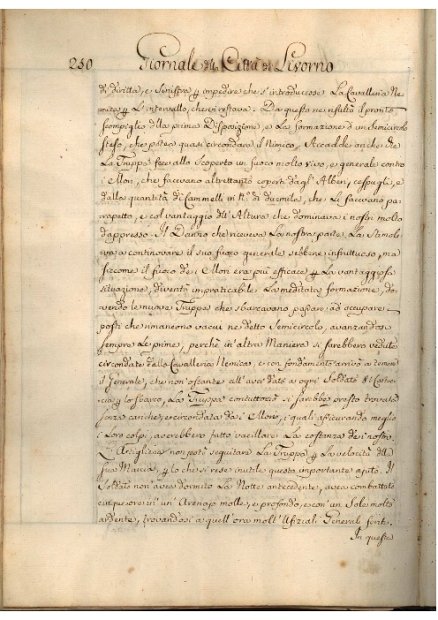 250 Giornale della Città di Livorno
di diritta, e Sinistra p impedire che s'introducesse La Cavalleria Ne-
mica p L'intervallo, che vi restava. Da questo ne risultò il pronto
scompiglio della prima Disposizione, e La formazione d'un Semicircolo
steso, che potea quasi circondare il Nimico. Accadde anche che
La Truppa fece allo Scoperto un fuoco molto vivo, e generale contro
i Mori, che facevano altrettanto coperti dagl'Alberi, cespugli, e
dalla quantità di Cammelli in n.º di duemila, che li facevano pa-
rapetto, e col vantaggio dell'Altura che dominava i nostri molto
dappresso. Il Danno che riceveva La nostra parte La stimola-
va a continovare il suo fuoco generale sebbene infruttuoso, ma
siccome il fuoco de i Mori era più efficace p La vantaggiosa
situazione, diventò impraticabile La meditata formazione, do-
vendo le nuove Truppe che sbarcavano passare ad occupare
posti che rimaneono vacui nel detto Semicircolo, avanzandosi
sempre Le prime, perchè in altra Maniera si sarebbero vedute
circondate dalla Cavalleria Nemica, e con fondamento arrivò a temere
il Generale, che non ostante all'aver dato a ogni Soldato
p lo sbarco, La Truppa contuttociò si sarebbe presto trovata
senza cariche, e circondata da i Mori, i quali assicurando meglio
i Loro colpi, averebbero fatto vacillare La costanza de i nostri.
L'Artiglieria non potè seguitare La Truppa p La velocità della
sua Marcia, p lo che si rese inutile questo importante ajuto. Il
Soldato non avea dormito La Notte antecedente, avea combattuto
cinque ore in un'Arenajo molle, e profondo, e con un Sole molto
ardente, trovandosi a quell'ora molt'Ufiziali Generali feriti.
In queste